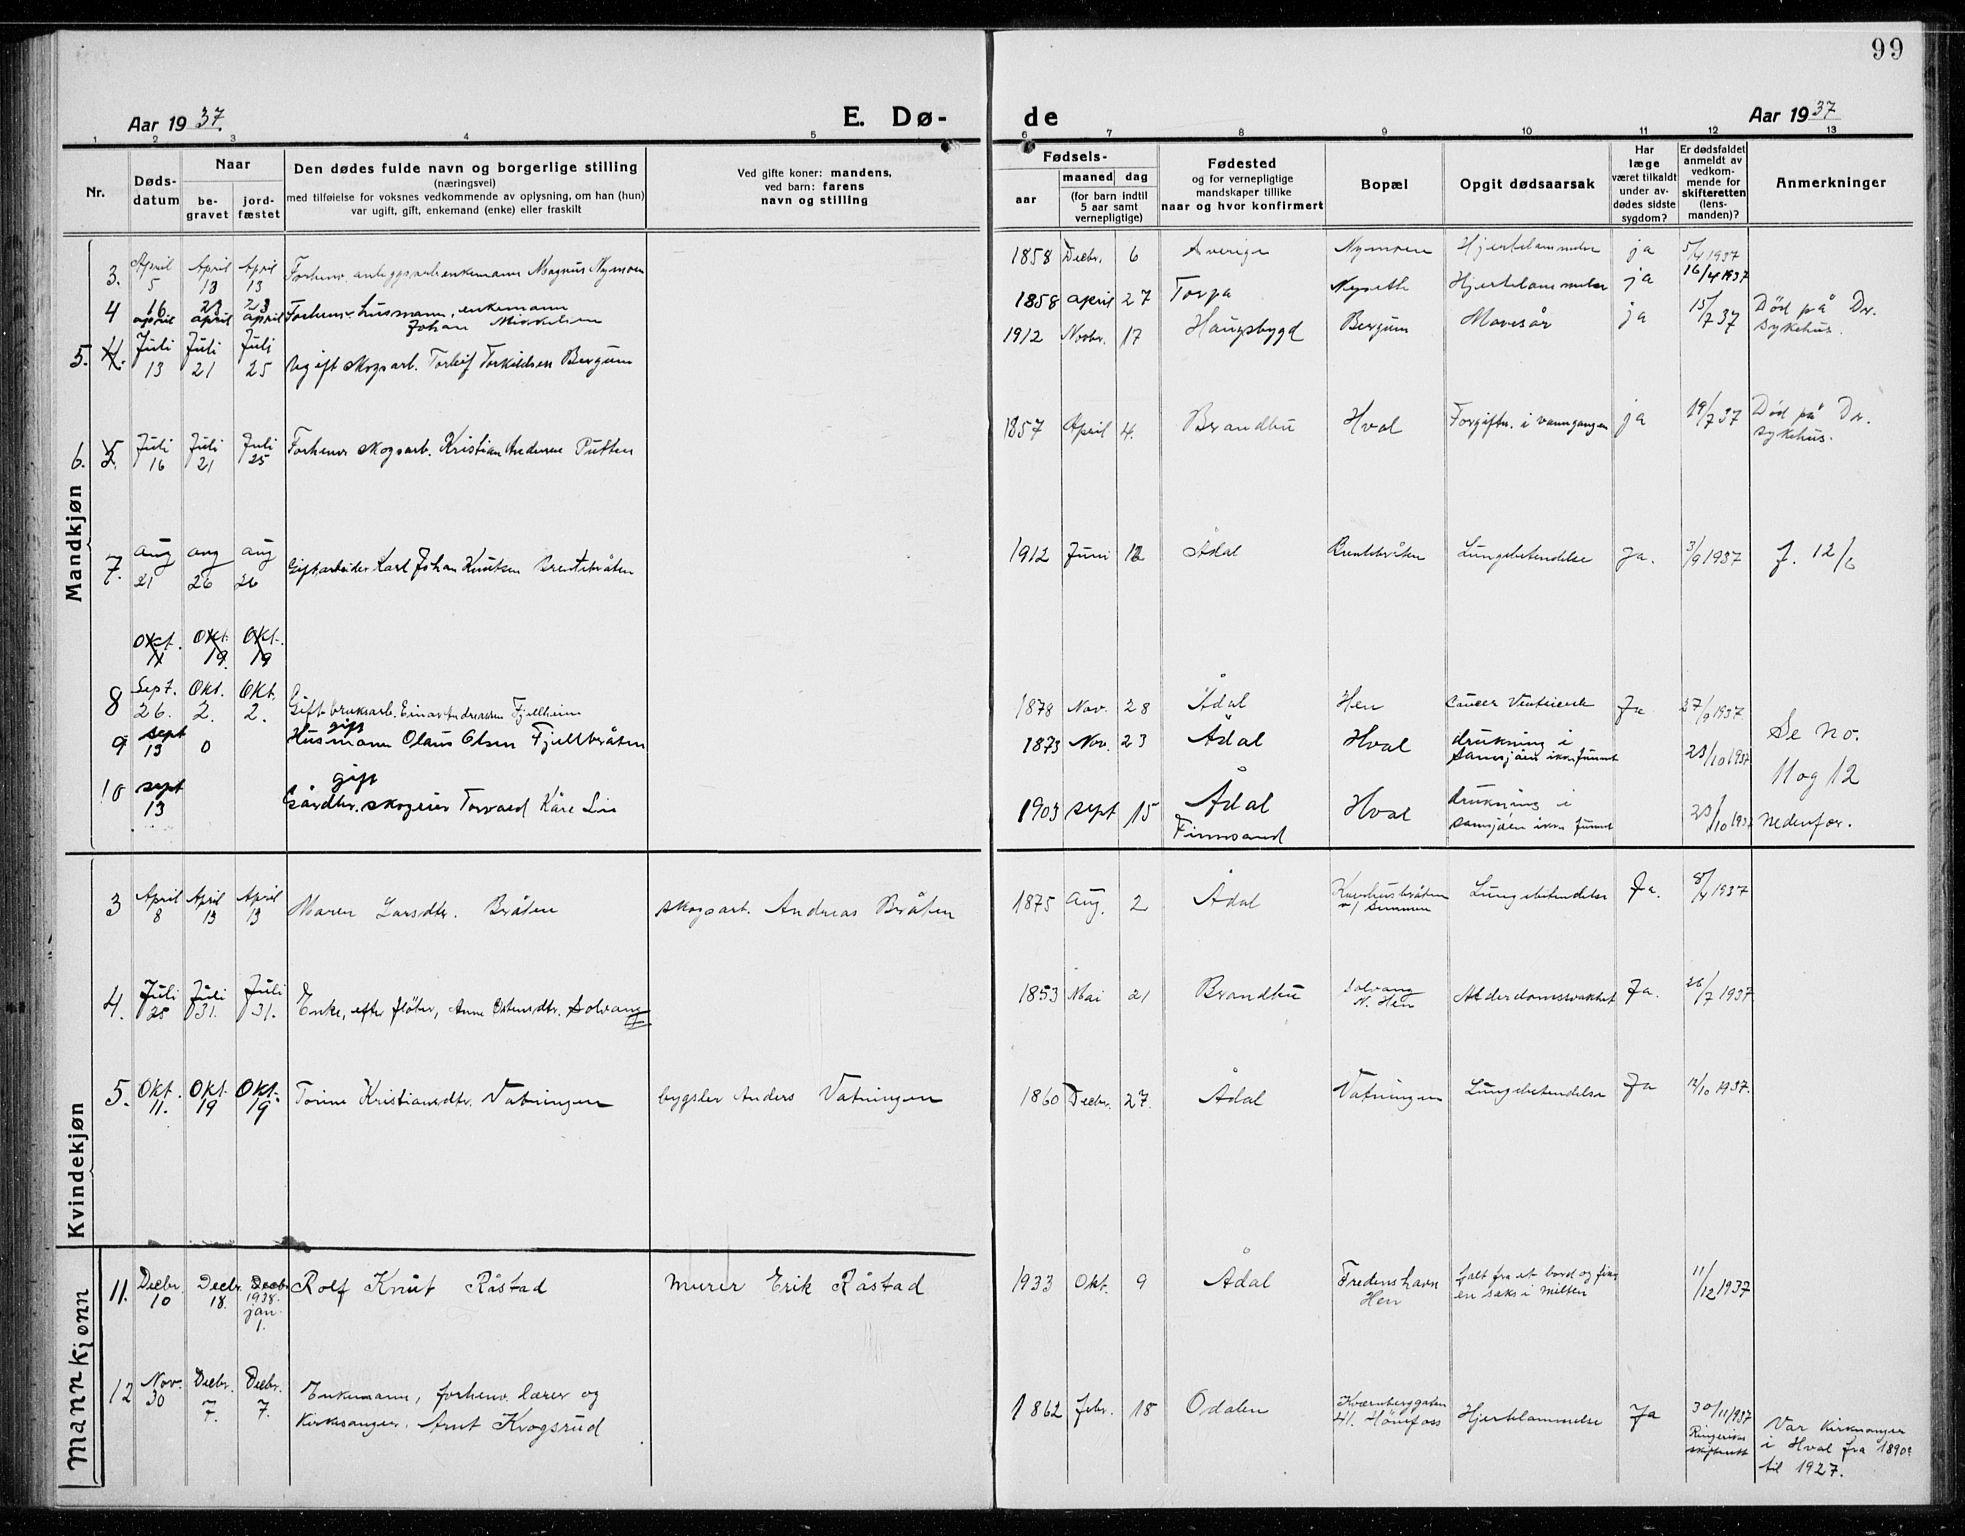 99
Aar 1937.
E. Dø-
de
Aar 1937
1 2 3 4 5 6 7 8 9 10 11 12 13
Nr.
Døds-
datum
Naar
be-
gravet
jord-
fæstet
Den dødes fulde navn og borgerlige stilling
(næringsvei)
med tilføielse for voksnes vedkommende av oplysning, om han (hun)
var ugift, gift, enkemand (enke) eller fraskilt
Ved gifte koner: mandens,
ved barn: farens
navn og stilling
Fødsels-
aar
maaned dag
(for barn indtil
5 aar samt
vernepligtige)
Fødested
og for vernepligtige
mandskaper tillike
naar og hvor konfirmert
Bopæl
Opgit dødsaarsak
Har
læge
været tilkaldt
under av-
dødes sidste
sygdom?
Er dødsfaldet
anmeldt av
vedkom-
mende for
skifteretten
(lens-
manden)?
Anmerkninger
Mandkjøn
3. April 5 April 13 April 13 Forhenv. anleggsarb. enkemann Magnus Nymoen 1858 Decbr. 6 Sverige Nymoen Hjertelammelse ja 5/4 1937
4 16 april 23 april 23 april Forhenv. husmann, enkemann
Johan Mikkelsen 1858 april 27 Torpa Nyseth Hjertelammelse ja 16/4 1937
5. 4. Juli 13 Juli 21 Juli 25 Ugift skogsarb. Torleif Torkildsen Bergum 1912 Novbr. 17 Haugsbygd Bergum Mavesår ja 15/7 37 Død på Dr.
sykehus.
6. 5. Juli 16 Juli 21 Juli 25 Forhenv skogsarb. Kristian Andersen Putten 1857 April 4. Brandbu Hval Forgiftn. i vanngangen ja 19/7 37 Død på Dr.
sykehus.
7. aug 21 aug 26 aug 26 Gift arbeider Karl Johan Knutsen Brentebråten 1912 Juni 12 Ådal Brentebråten Lungebetendelse Ja. 3/9 1937 f. 12/6
Okt. 11 Okt. 19. Okt. 19
8 Sept. 26. Okt. 2. Okt. 2. Gift bruksarb. Einar Andreassen Fjellheim 1878 Nov. 28 Ådal Hen Cancer Ventricule Ja 27/9 1937
gift
9 sept 13 0 Husmann Olaus Olsen Fjellbråten 1873 Nov. 23 Ådal Hval drukning i
Samsjøen ikke funnet 23/10 1937 Se no.
11 og 12
nedenfor.
gift
10 sept 13 Gårdbr. skogeier Torvald Kåre Lie 1903 sept 15 Ådal
Finnsand Hval drukning i
samsjøen ikke funnet 23/10 1937
Kvindekjøn
3 April 8 April 13 April 13 Maren Larsdtr. Bråten skogsarb. Andreas Bråten 1875 Aug. 2 Ådal
v/ Lungebetendelse Ja. 8/4 1937
4. Juli 25 Juli 31. Juli 31. Enke, efter fløter, Anne Ostensdtr. Solvang 1853 Mai 21 Brandbu Solvang
N. Hen Alderdomssvakhet Ja. 26/7 1937
5. Okt. 11. Okt. 19 Okt. 19 Torine Kristiansdtr. Vatningen bygsler Anders Vatningen 1860 Decbr. 27. Ådal Vatningen Lungebetendelse Ja 12/10 1937.
Mannkjønn
11. Decbr. 10 Decbr. 18. Decbr 1938. jan. 1. Rolf Knut Råstad murer Erik Råstad 1933 Okt. 9 Ådal Fredenshavn
Hen falt fra et bord og fikk
en saks i milten 11/12 1937
12 Nov. 30 Decbr. 7. Decbr. 7. Enkemann, forhenv. lærer og
kirkesanger. Arnt Krogsrud 1862 febr. 15 Odalen Kvernberggaten
41. Hønefoss Hjertelammelse Ja 30/11 1937
Ringerike
skifterett Var kirkesanger
i Hval fra 1890
til 1927.